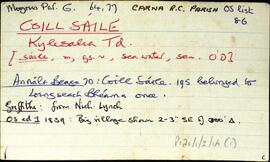 Moyrus Par. G. (4, 7) CARNA R.C. PARISH OS list
86
COILL SÁILE
Kylesalia Td.
[ saile, m, gs. n, sea water, sea. O'D]
Annála Beaga 70: Coill Sáile. 195 belonged to
Loingseach Bhéarna once.
Griffiths: from Nich. Lynch
OS ed 1 1839: Big village shown 2-3" SE of 300' Δ.